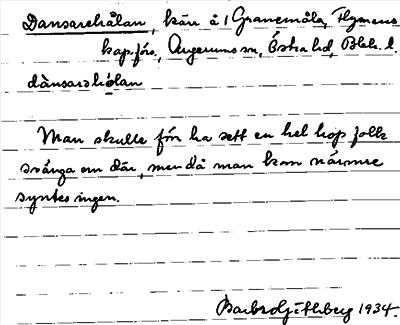 Dansarehålan, kärr å 1 Granemåla, Flymens
kap.förs., Augerums sn, Östra hd, Blek. l.
dànsarəhòlan
Man skulle förr ha sett en hel hop folk
svänga om där, men då man kom närmre
syntes ingen.
1934.